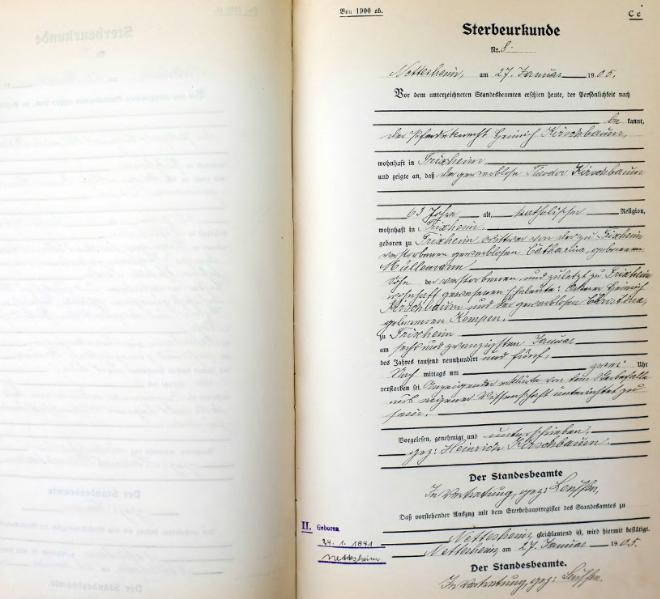 Von 1900 ab.
C e
Sterbeurkunde
Nr. 8.
Nettersheim, am 27. Januar 1905.
Vor dem unterzeichneten Standesbeamten erschien heute, der Persönlichkeit nach
be kannt,
der Heinrich Kirschbaum,
wohnhaft in Frixheim
und zeigte an, daß der gewerblose Teodor Kirschbaum
63 Jahre alt, katholischer Religion,
wohnhaft in Frixheim
geboren zu Frixheim, Wittwer von der zu Frixheim
verstorbenen gewerblosen Catharina, geborenen
Müllemann
Sohn der verstorbenen und zuletzt zu Frixheim
wohnhaft gewesenen Eheleute: Heinrich
Kirschbaum und der gewerblosen
geborenen Kempen.
zu Frixheim
am sechs und zwanzigsten Januar
des Jahres tausend neunhundert und fünf
Nach mittags um zwei Uhr
verstorben sei. Anzeigender erklärte von dem Sterbefalle
aus eigener Wissenschaft unterrichtet zu
sein.
Vorgelesen, genehmigt und unterschrieben:
gez: Heinrich Kirschbaum.
Der Standesbeamte
In Vertretung, gez:
Daß vorstehender Auszug mit dem Sterbehauptregister des Standesamtes zu
Nettersheim gleichlautend ist, wird hiermit bestätigt.
Nettersheim am 27. Januar 1905.
Der Standesbeamte.
In Vertretung, gez:
II. Geboren
24. 1. 1841
Nettesheim